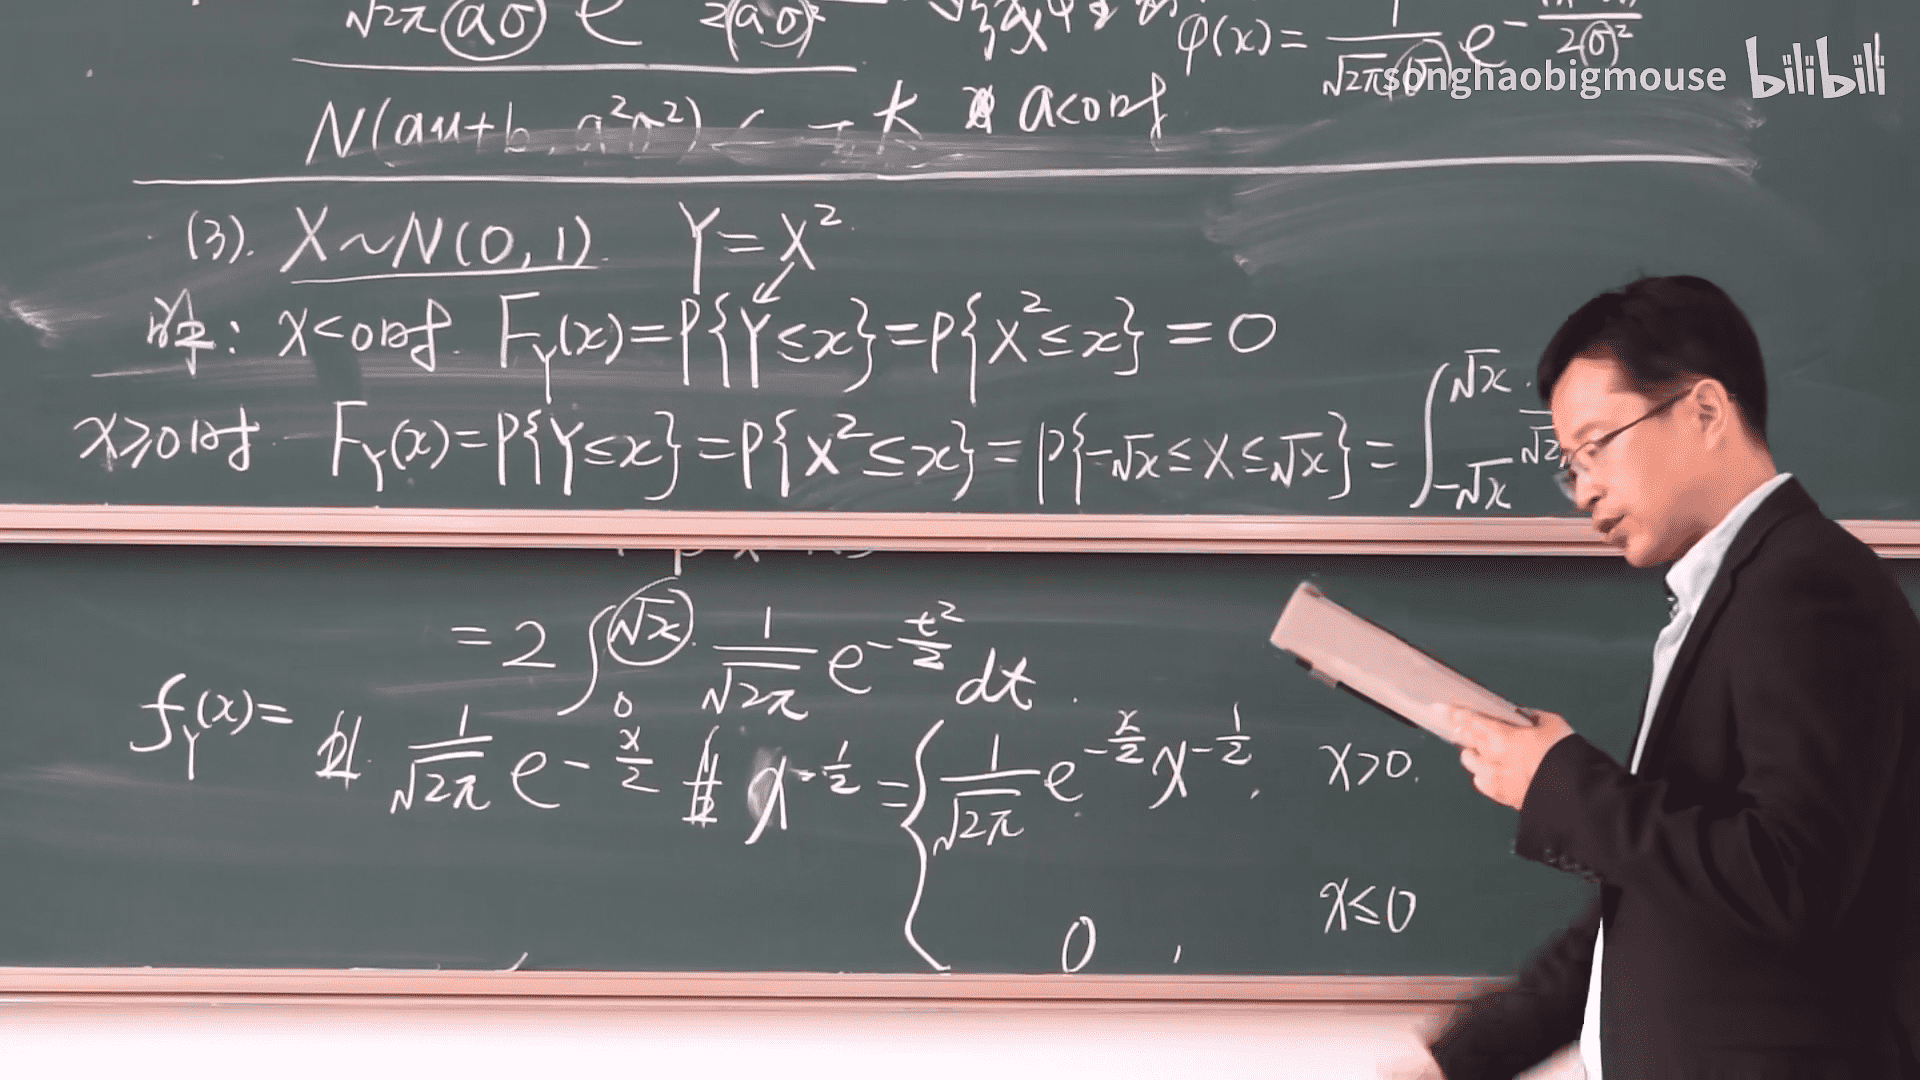 √2π (aσ) e 2(aσ)²
φ(x)= 1/(√2π σ) e^-  2(σ)²
songhaobigmouse bilibili
N(au+b, a²σ²) a<0时
(3). X~N(0,1). Y=X²
解: x<0时. F_Y(x)=P{Y≤x}=P{X²≤x}=0
x≥0时 F_Y(x)=P{Y≤x}=P{X²≤x}=P{-√x≤X≤√x}=∫_{-√x}^{√x}
=2∫_0^{√x} 1/√2π e^{-t²/2} dt.
f_Y(x)= 1/√2π e^{-x/2} x^{-1/2} = { 1/√2π e^{-x/2} x^{-1/2}, x>0.
0, x≤0